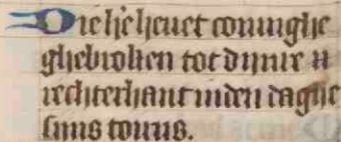 Die h'e heuet coninghe
ghebroken tot dijnre
rechterhant inden daghe
sijns torns.